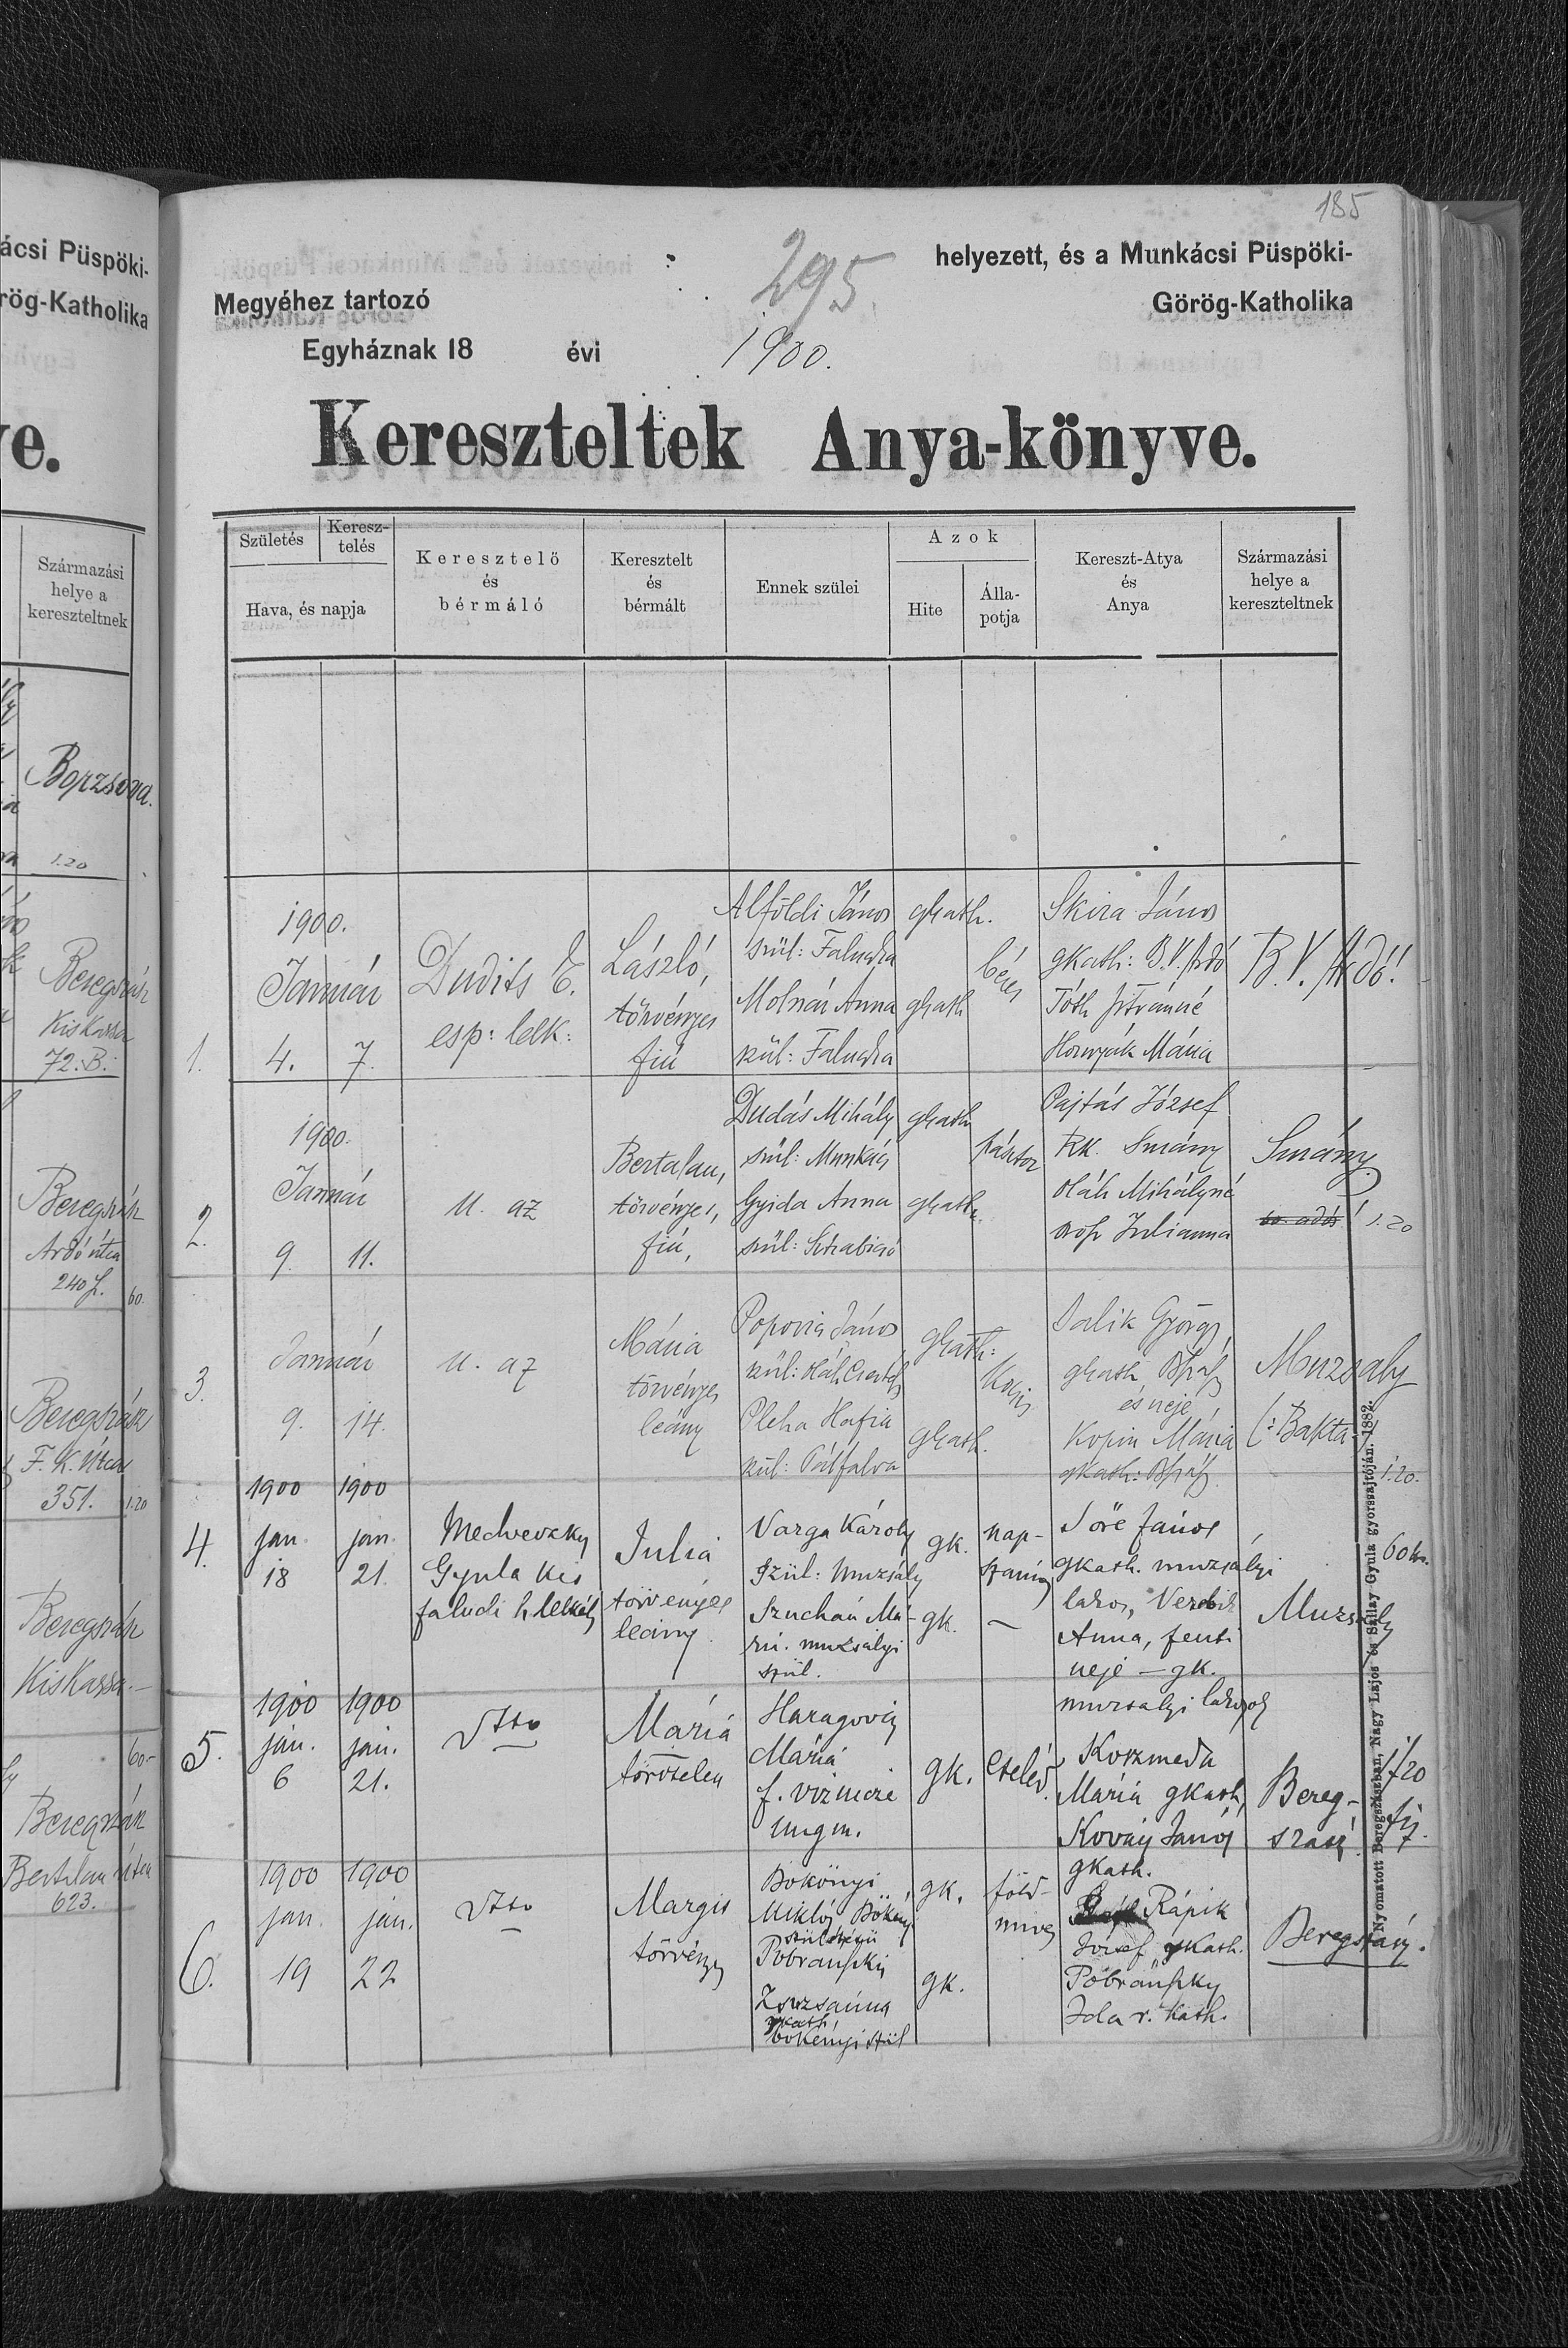 ácsi Püspöki-
rög-Katholika
ve.
Származási
helye a
kereszteltnek
Borzsova.
1.20
Beregszász
Kis Kassa
72. B:
Beregszász
Ardó utca
240 f.
60.
Beregszász
F. K. Utca
351.
1.20
Beregszász
Kis Kassa.—
60.—
Beregszász
Bertalan utca
623.
185
295
helyezett, és a Munkácsi Püspöki-
Megyéhez tartozó
Görög-Katholika
Egyháznak 18 évi 1900.
Kereszteltek Anya-könyve.
Születés
Keresz-
telés
Hava, és napja
Keresztelő
és
bérmáló
Keresztelt
és
bérmált
Ennek szülei
Azok
Hite
Álla-
potja
Kereszt-Atya
és
Anya
Származási
helye a
kereszteltnek
1.
1900.
Január
4. 7.
Dudits E.
esp: lelk:
László,
törvényes
fiú
Alföldi János
szül: Faludra
Molnár Anna
szül: Faludra
gkath.
gkath
béres
Skira János
gkath: B.V. Ardó
Tóth Istvánné
Hornyák Mária
B.V. Ardó!
2.
1900.
Január
9. 11.
U. az
Bertalan,
törvényes,
fiú,
Dudás Mihály
szül: Munkács
Gyida Anna
szül:
gkath
gkath.
pásztor
Pajtás József
rk. Surány
Oláh Mihályné
Julianna
Surány
1.20
3.
Január
9. 14.
U. az
Mária
törvényes
leány
Popovics János
szül: Oláh Csertész
Pleha Hafia
szül: Pálfalva
gkath:
gkath.
Kocsis
Salik György
gkath Bszász
és neje
Kopin Mária
gkath: Bszász
Muzsaly
(: Bakta :)
1.20.
4.
1900 1900
jan. jan.
18 21.
Medveczky
Gyula Kis
faludi h. lelkész
Julia
törvényes
leány
Varga Károly
szül: Muzsály
Szuchán Má-
ria. muzsályi
szül.
gk.
gk.
nap-
számos
—
Söre János
gkath. muzsályi
lakos, Verebik
Anna, fenti
neje — gk.
muzsalyi lakosok
Muzsaly
60 kr.
5.
1900 1900
ján. ján.
6 21.
Dtto
Mária
törvtelen
Haragovics
Mária
f. viznicze
ung m.
gk.
cseléd
Koszmeda
Mária gkath,
Kovács János
gkath.
Bereg-
szász
1/20
6.
1900 1900
jan. ján.
19 22
Dtto
Margit
törvényes
Bökényi
Miklós Bökény
születésü
Pobránszki
Zsuzsánna
gkath,
bökényi szül
gk.
gk.
föld-
mives
Rápik
József gkath.
Pobránszky
Ida r. kath.
Beregszász.
Nyomatott Beregszászban, Nagy Lajos és Sillay Gyula gyorssajtóján. 1882.